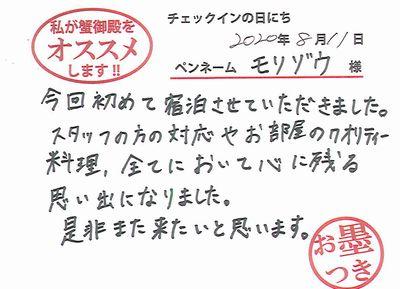 私が蟹御殿を
オススメ
します!!
チェックインの日にち
2020年8月11日
ペンネーム モリゾウ 様
今回初めて宿泊させていただきました。
スタッフの方の対応やお部屋のクオリティー
料理、全てにおいて心に残る
思い出になりました。
是非また来たいと思います。
お墨
つき